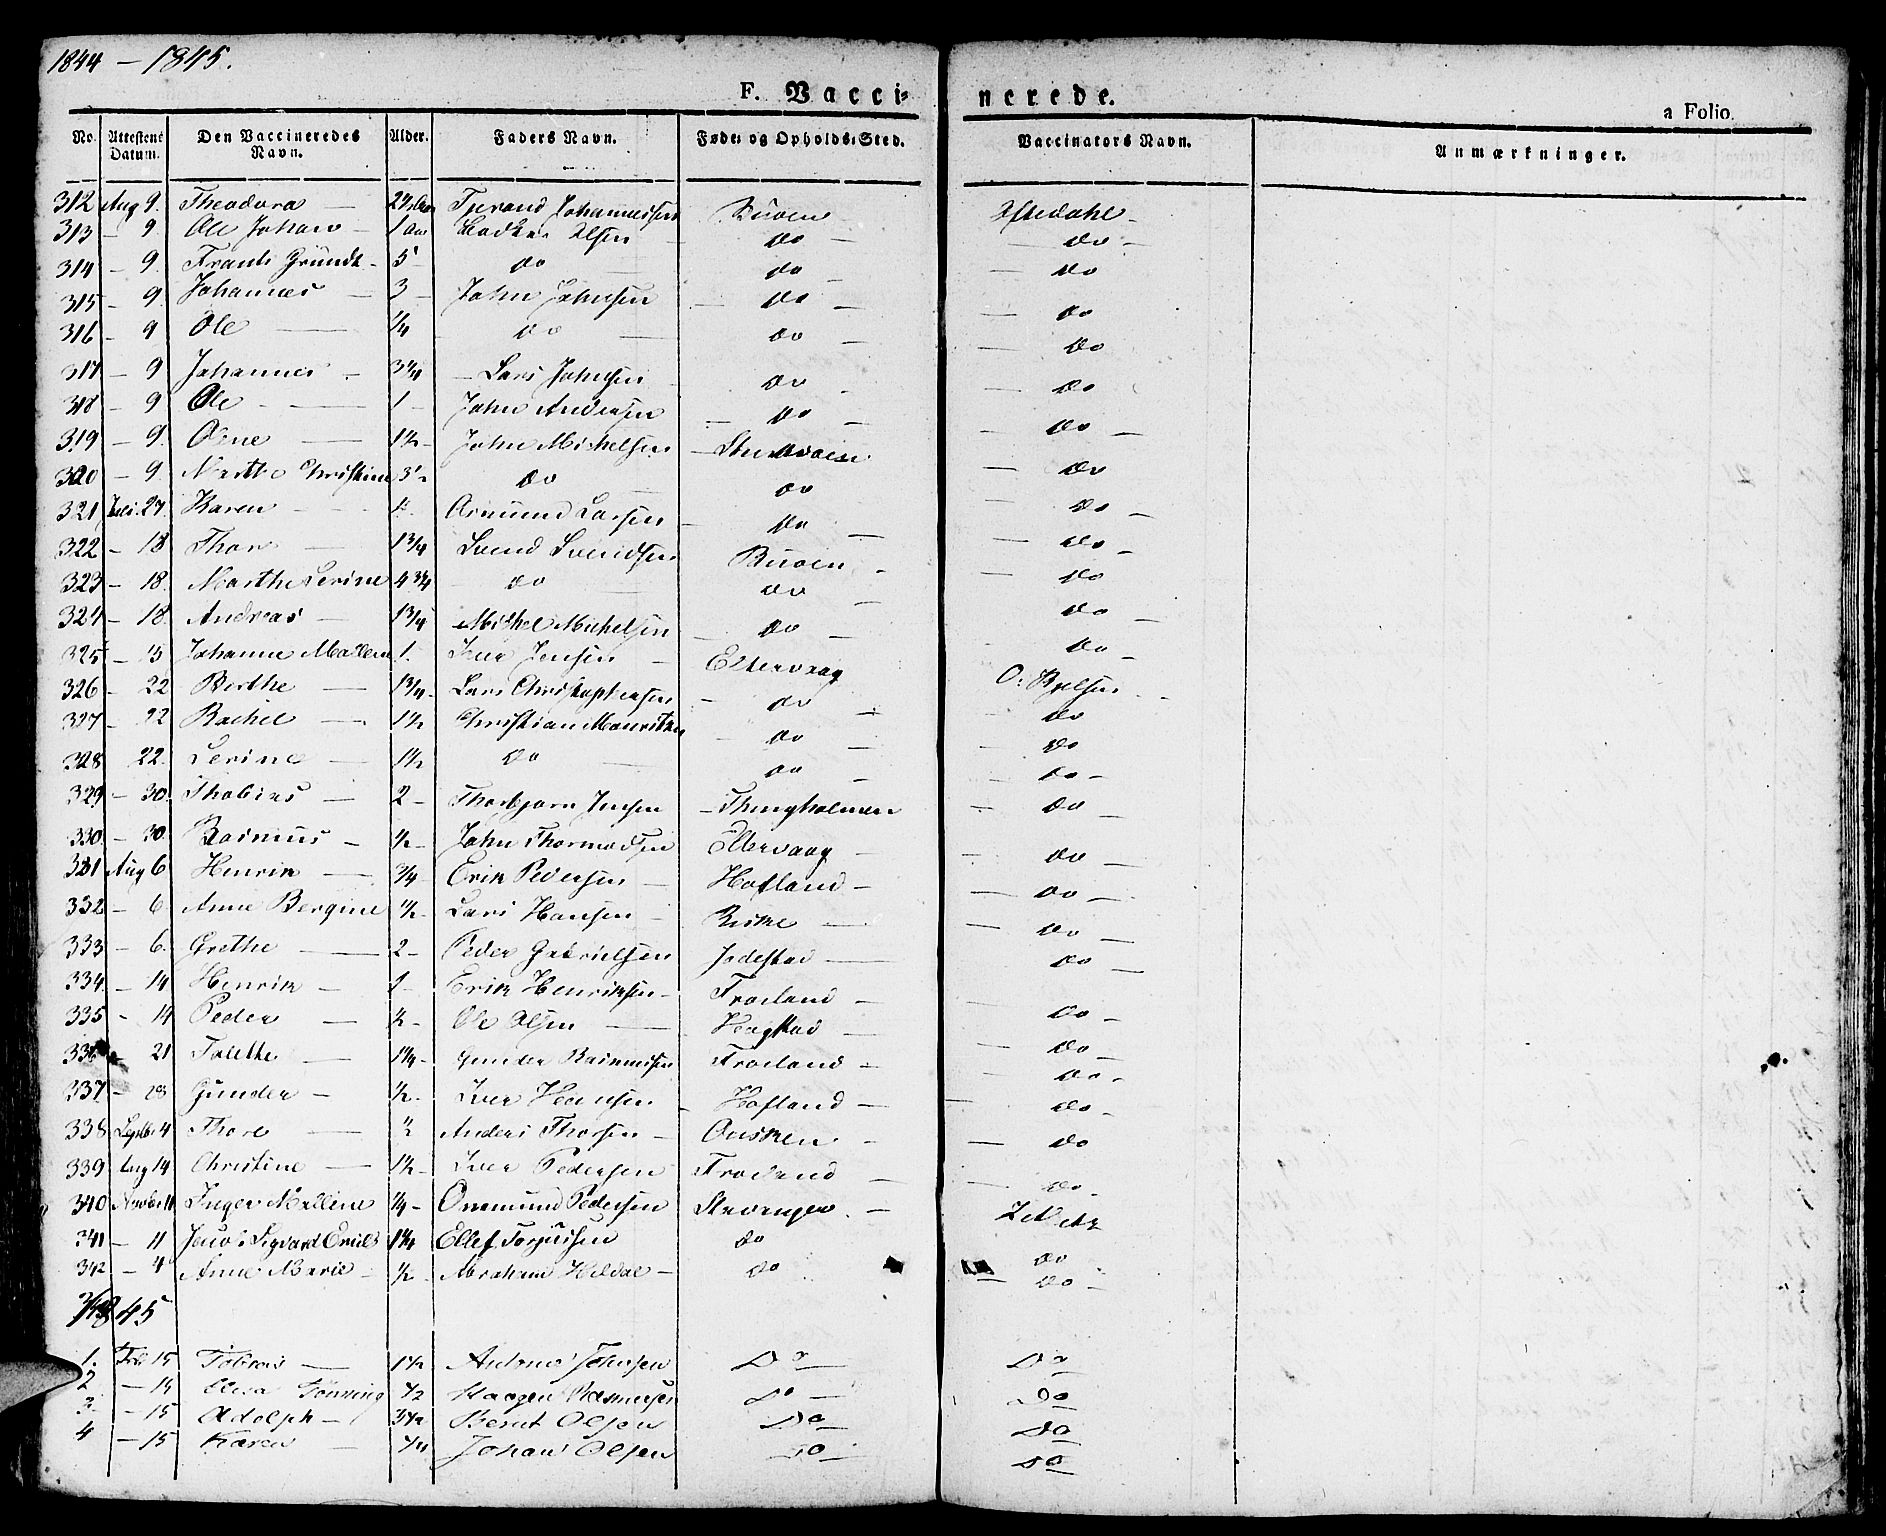 1844 – 1845.
F. Vaccinerede.
a Folio.
No. Attestens Datum. Den Vaccineredes Navn. Alder. Faders Navn. Føde- og Opholds-Sted. Vaccinators Navn. Anmærkninger.
312 Aug 9. Theodora — Tjerand Johannessen Buøen
313 – 9 Ole Johan – 1 Olsen do – do –
314 – 9. Frants Grundt – 5 do do – do
315 – 9. Johannes – 3 – John Johnsen – do – – do
316 – 9 Ole — 1/4 do do – do
317 – 9 Johannes – 3 1/4 – Lars Johnsen do – do
318 – 9 Ole – 1 – John Andersen – do – – do –
319 – 9. Oline — 1 1/2 – John Michelsen – – do
320 – 9. Marthe Christine 3 1/2 do do – do –
321 Juli 27. Karen – Asmund Larsen – do – – do –
322 – 18 Thor — 1 3/4 Svend Svendsen Buøen – – do
323 – 18. Marthe Serine 4 3/4 do do – do –
324 – 18. Andreas – 1 3/4 Michel Michelsen – do – do –
325 – 15 Johanne Mallene 1. Iver Jensen – Eltervaag O:
326 – 22 Berthe — 1 3/4 – Lars Christophersen – do – do
327 – 22 Rachel — 1 1/2 Christian Mauritzen – do – – do
328 22. Serine – 1 1/2 do do – do –
329 – 30. Thobias – 2 – Thorbjørn Jensen – Thingholmen – do –
330 – 30. Rasmus – 1/2 – John Thormodsen Eltervaag – – do –
331 Aug 6 Henrik — 3/4 Erik Pedersen – Hofland – – do –
332 – 6 Anne Bergine 1 1/2 – Lars Hansen – Riske — – do –
333 – 6. Grethe — 2 – Peder Gabrielsen Jadestad — do –
334 – 14 Henrik – 1 – Erik Henriksen – Frøland – – do –
335 – 14 Peder — 1/2 – Ole Olsen — Hogstad — – do –
336 21 Talette – 1 1/4 – Gunder Rasmusen Frøland – – do –
337 – 28 Gunder – 1/2 – Iver Hansen – Hofland – – do –
338 Septbr 4 Thore — 1/2 Anders Thorsen – – – do
339 Aug 14 Christine — 1 1/2 – Iver Pedersen Frøland – – do –
340 Novbr 11 Inger Mallene 1/4 – Ommund Pedersen Stavanger. – Zetlitz
341 – 11 Jacob Sigvard Emil 1 1/4 Ellef Torjusen do – do
342 – 4 Anne Marie – 1/2 – Abraham Hildal – do – do –
1845
1. Feb 15 Tobias — 1 1/2 Johnsen Do – Do
2 – 15 Elisa Tønning 1/2 Haagen Rasmusen Do – Do
3. – 15 Adolph – 3 1/2 Bernt Olsen Do Do
4 – 15 Karen – 1/4 Johan Olsen Do Do